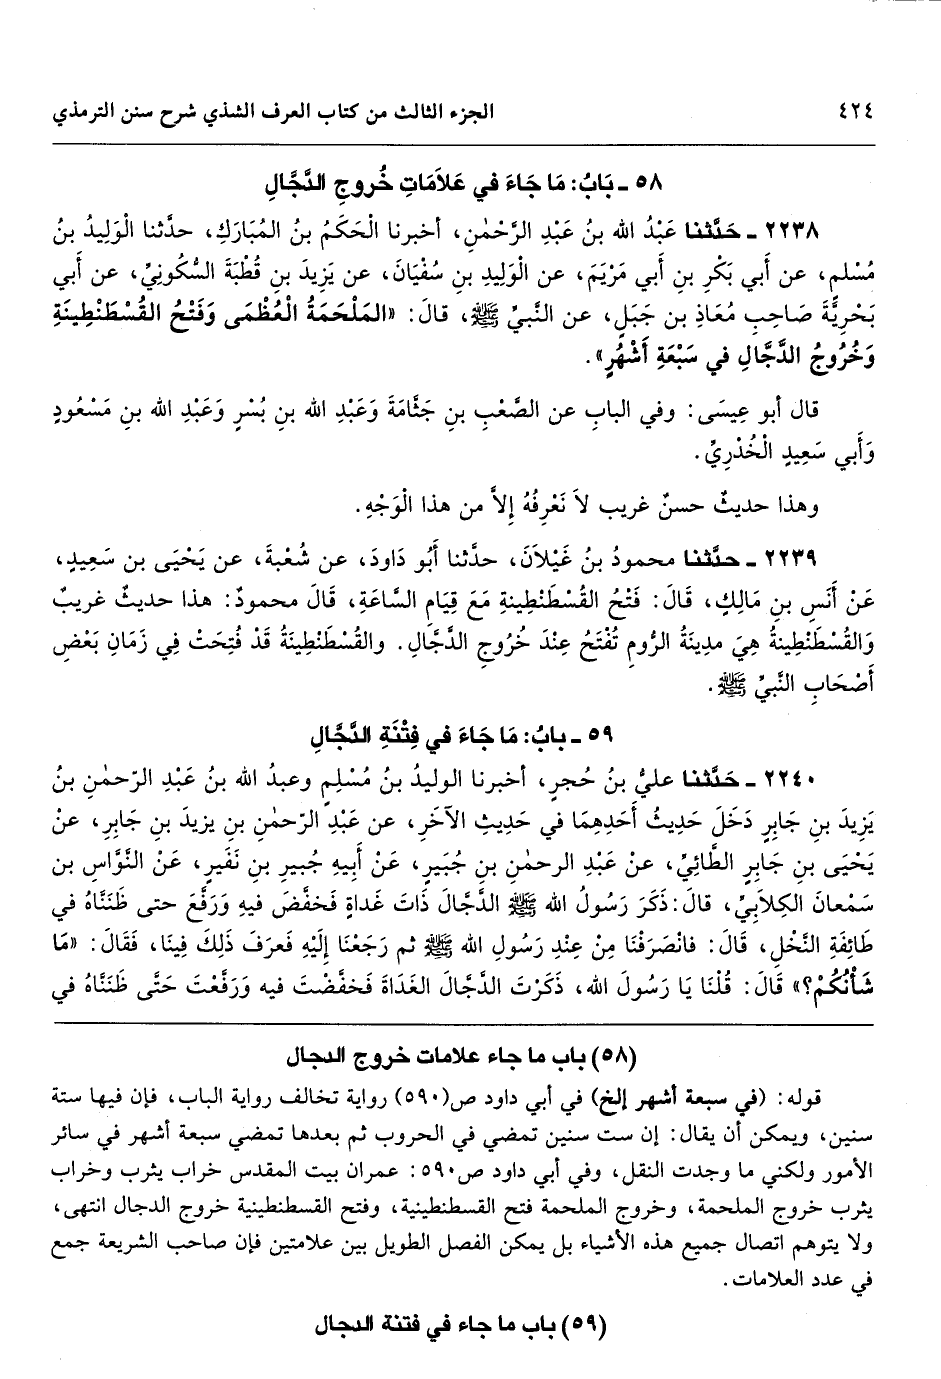 ٤٢٤ الجزء الثالث من كتاب العرف الشذي شرح سنن الترمذي
٥٨ ـ بَابُ: مَا جَاءَ في عَلاَمَاتِ خُروجِ الدَّجَّالِ
٢٢٣٨ ـ حَدَّثنا عَبْدُ الله بنُ عَبْدِ الرَّحْمٰنِ، أخبرنا الْحَكَمُ بنُ المُبَارَكِ، حدَّثنا الْوَلِيدُ بنُ
مُسْلمٍ، عن أَبي بَكْرِ بنِ أبي مَرْيَمَ، عن الْوَلِيدِ بنِ سُفْيَانَ، عن يَزِيدَ بنِ قُطْبَةَ السُّكُونِيِّ، عن أَبي
بَحْرِيَّةَ صَاحِبِ مُعَاذِ بن جَبَلٍ، عن النَّبيِّ ﷺ، قالَ: «المَلْحَمَةُ الْعُظْمَى وَفَتْحُ القُسْطَنْطِينَةِ
وَخُرُوجُ الدَّجَّالِ في سَبْعَةِ أَشْهُرٍ».
قال أبو عِيسَى: وفي البابِ عن الصَّعْبِ بنِ جَثَّامَةَ وَعَبْدِ الله بنِ بُسْرٍ وَعَبْدِ الله بنِ مَسْعُودٍ
وَأَبي سَعِيدٍ الْخُدْرِيِّ.
وهذا حديثٌ حسنٌ غريب لاَ نَعْرِفُهُ إلاَّ من هذا الْوَجْهِ.
٢٢٣٩ ـ حدَّثنا محمودُ بنُ غَيْلاَنَ، حدَّثنا أَبُو دَاودَ، عن شُعْبةَ، عن يَحْيَى بن سَعِيدٍ،
عَنْ أَنَسِ بنِ مَالِكٍ، قَالَ: فَتْحُ القُسْطَنْطِينةِ مَعَ قِيَامِ السَّاعَةِ، قَالَ محمودٌ: هذا حديثٌ غريبٌ
وَالقُسْطَنْطِينةُ هِيَ مدِينَةُ الرُّومِ تُفْتَحُ عِنْدَ خُرُوجِ الدَّجَّالِ. والقُسْطَنْطِينَةُ قَدْ فُتِحَتْ فِي زَمَانِ بَعْضِ
أَصْحَابِ النَّبيِّ ﷺ.
٥٩ ـ بابُ: مَا جَاءَ في فِتْنَةِ الدَّجَّالِ
٢٢٤٠ ـ حَدَّثنا عليُّ بنُ حُجرٍ، أخبرنا الوليدُ بنُ مُسْلمٍ وعبدُ الله بنُ عَبْدِ الرّحمٰنِ بنُ
يَزِيدَ بنِ جَابرٍ دَخَلَ حَدِيثُ أَحَدِهِمَا في حَدِيثِ الآخَرِ، عن عَبْدِ الرّحمٰنِ بنِ يزيدَ بنِ جَابِرٍ، عنْ
يَحْيَى بنِ جَابرٍ الطَّائِيِّ، عنْ عَبْدِ الرحمٰنِ بنِ جُبَيرٍ، عَنْ أَبيهِ جُبيرِ بنِ نَفَيرٍ، عَنْ النَّوَّاسِ بن
سَمْعانَ الكِلاَبيِّ، قالَ: ذَكَرَ رَسُولُ الله ﷺ الدَّجَّالَ ذَاتَ غَداةٍ فَخفَّضَ فيهِ وَرَفَّعَ حتى ظَنَنَّاهُ في
طَائِفَةِ النَّخْلِ، قَالَ: فانْصَرَفْنَا مِنْ عِنْدِ رَسُولِ الله ﷺ ثم رَجَعْنَا إلَيْهِ فَعرَفَ ذَلِكَ فِينَا، فَقَالَ: «مَا
شَأْنُكُمْ؟» قَالَ: قُلْنَا يَا رَسُولَ الله، ذَكَرْتَ الدَّجَّالَ الغَدَاةَ فَخفَّضْتَ فيه وَرَفَّعْتَ حَتَّى ظَنَنَّاهُ في
(٥٨) باب ما جاء علامات خروج الدجال
قوله: (في سبعة أشهر إلخ) في أبي داود ص(٥٩٠) رواية تخالف رواية الباب، فإن فيها ستة
سنين، ويمكن أن يقال: إن ست سنين تمضي في الحروب ثم بعدها تمضي سبعة أشهر في سائر
الأمور ولكني ما وجدت النقل، وفي أبي داود ص٥٩٠: عمران بيت المقدس خراب يثرب وخراب
يثرب خروج الملحمة، وخروج الملحمة فتح القسطنطينية، وفتح القسطنطينية خروج الدجال انتهى،
ولا يتوهم اتصال جميع هذه الأشياء بل يمكن الفصل الطويل بين علامتين فإن صاحب الشريعة جمع
في عدد العلامات.
(٥٩) باب ما جاء في فتنة الدجال